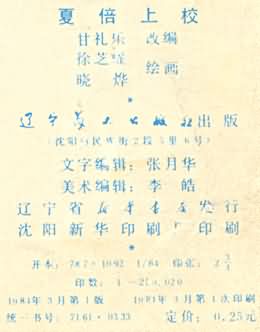 夏倍上校
甘礼乐 改编
徐芝
晓烨 绘画
辽宁美术出版社出版
(沈阳市民族街2段5里6号)
文字编辑：张月华
美术编辑：李皓
辽宁省新华书店发行
沈阳新华印刷厂印刷
开本：787×1092 1/64 印张：2 3/4
印数：1—
1984年3月第1版 1984年3月第1次印刷
统一书号：7161·0333 定价：0.25元